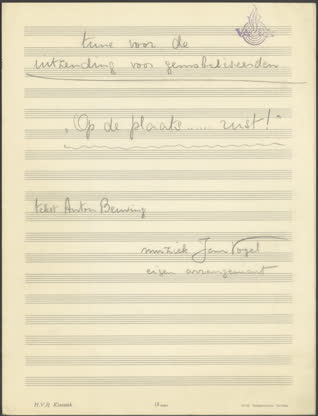 tune voor de
uitzending voor gemobiliseerden
"Op de plaats ..... rust!"
tekst Anton Beuving
muziek Jan Vogel
eigen arrangement
H.V.